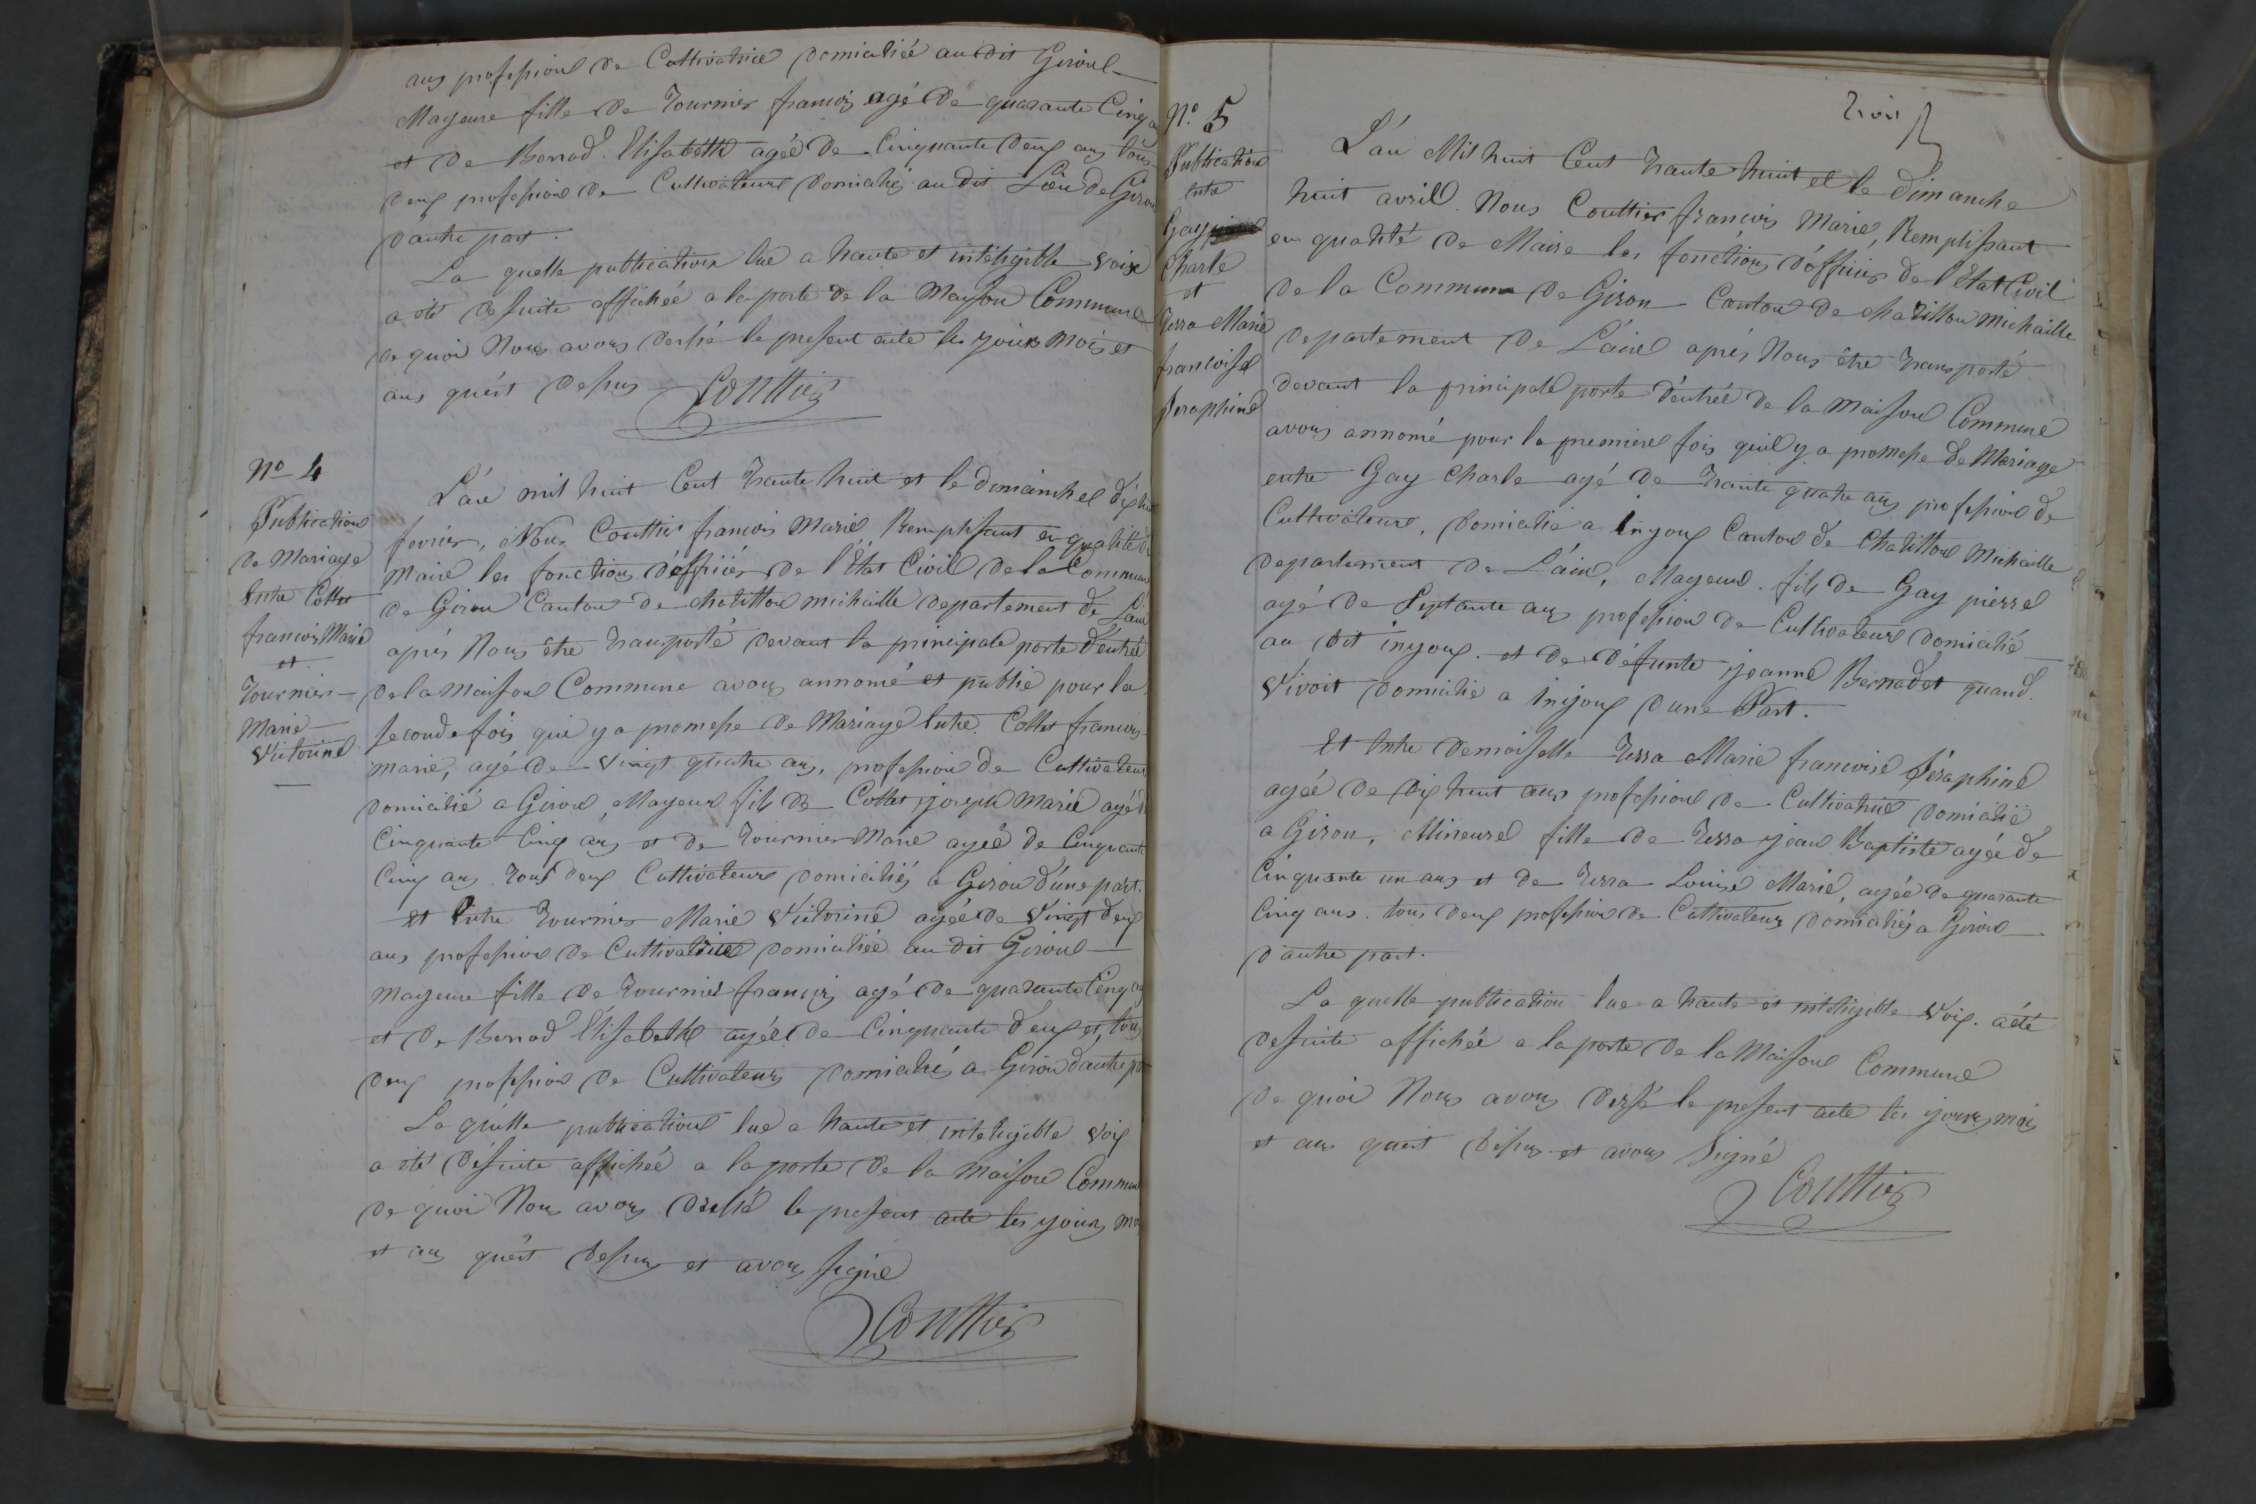 ans profession de Cultivatrice domiciliée au dit Giron
Mayeure fille de Tournier francois agé de quarante Cinq
et de Bonnod Elisabeth agée de Cinquante deux ans tous
deux profession de Cultivateurs domiciliés au dit Lieu de Giron
d'autre part.
La quelle publication lue a haute et inteligible Voix
a été desuite affichée a la porte de la Maison Commune
de quoi Nous avons dressé le present acte les jours mois et
ans qu'est dessus
Couttier
N° 4
Publication
de Mariage
Entre Collet
francois Marie
et
Tournier
Marie
Victorine
L'an mil huit Cent trante huit et le dimanche dix huit
fevrier, Nous Couttier francois Marie Remplissant en qualité de
Maire les fonctions d'officier de l'État Civil de la Commune
de Giron Canton de chatillon michaille departement de L'ain
après Nous être transporté devant la principale porte d'entrée
de la Maison Commune avons annoncé et publié pour la
seconde fois qui y a promesse de Mariage Entre Collet francois
marie, agé de Vingt quatre ans, profession de Cultivateur
domicilié a Giron, Mayeur fils de Collet joseph Marie agé de
Cinquante Cinq ans et de Tournier Marie agée de Cinquante
Cinq ans Tous deux Cultivateurs domiciliés a Giron d'une part.
et Entre Tournier Marie Victorine agée de Vingt deux
ans profession de Cultivatrice domiciliée au dit Giron
mayeure fille de Tournier francois agé de quarante Cinq ans
et de Bonnod Elisabeth agée de Cinquante deux et tous
deux profession de Cultivateurs domiciliés a Giron d'autre part
La quelle publication lue a haute et inteligible Voix
a été desuite affichée a la porte de la Maison Commune
de quoi Nous avons dressé le present acte les jours mois
et ans qu'est dessus et avons signé
Couttier
trois
N° 5
Publication
entre
Gay
Charle
et
Terra Marie
francoise
Seraphine
L'an Mil huit Cent trante huit et le dimanche
huit avril. Nous Couttier francois Marie, Remplissant
en qualité de Maire les fonctions d'officier de l'État Civil
de la Commune de Giron Canton de chatillon Michaille
departement de L'ain après Nous être transporté
devant la principale porte d'entrée de la Maison Commune
avons annoncé pour la premiere fois qu'il y a promesse de Mariage
entre Gay Charle agé de trante quatre ans profession de
Cultivateur, domicilié a injoux Canton de Chatillon Michaille
departement de L'ain, Mayeur. fils de Gay pierre
agé de Septante ans profession de Cultivateur domicilié
au dit injoux. et de défunte jeanne Bernadet quand
Vivoit domicilié a injoux d'une Part.
Et Entre demoiselle Terra Marie francoise Séraphine
agée de dix huit ans profession de Cultivatrice domicilié
a Giron, Mineure fille de Terra jean Baptiste agée de
Cinquante un ans et de Terra Louise Marie, agée de quarante
Cinq ans. tous deux profession de Cultivateurs domiciliés a Giron
d'autre part.
La quelle publication lue a haute et inteligible Voix. a été
desuite affichée a la porte de la Maison Commune
de quoi Nous avons dressé le present acte les jours, mois
et ans quest dessus et avons Signé
Couttier